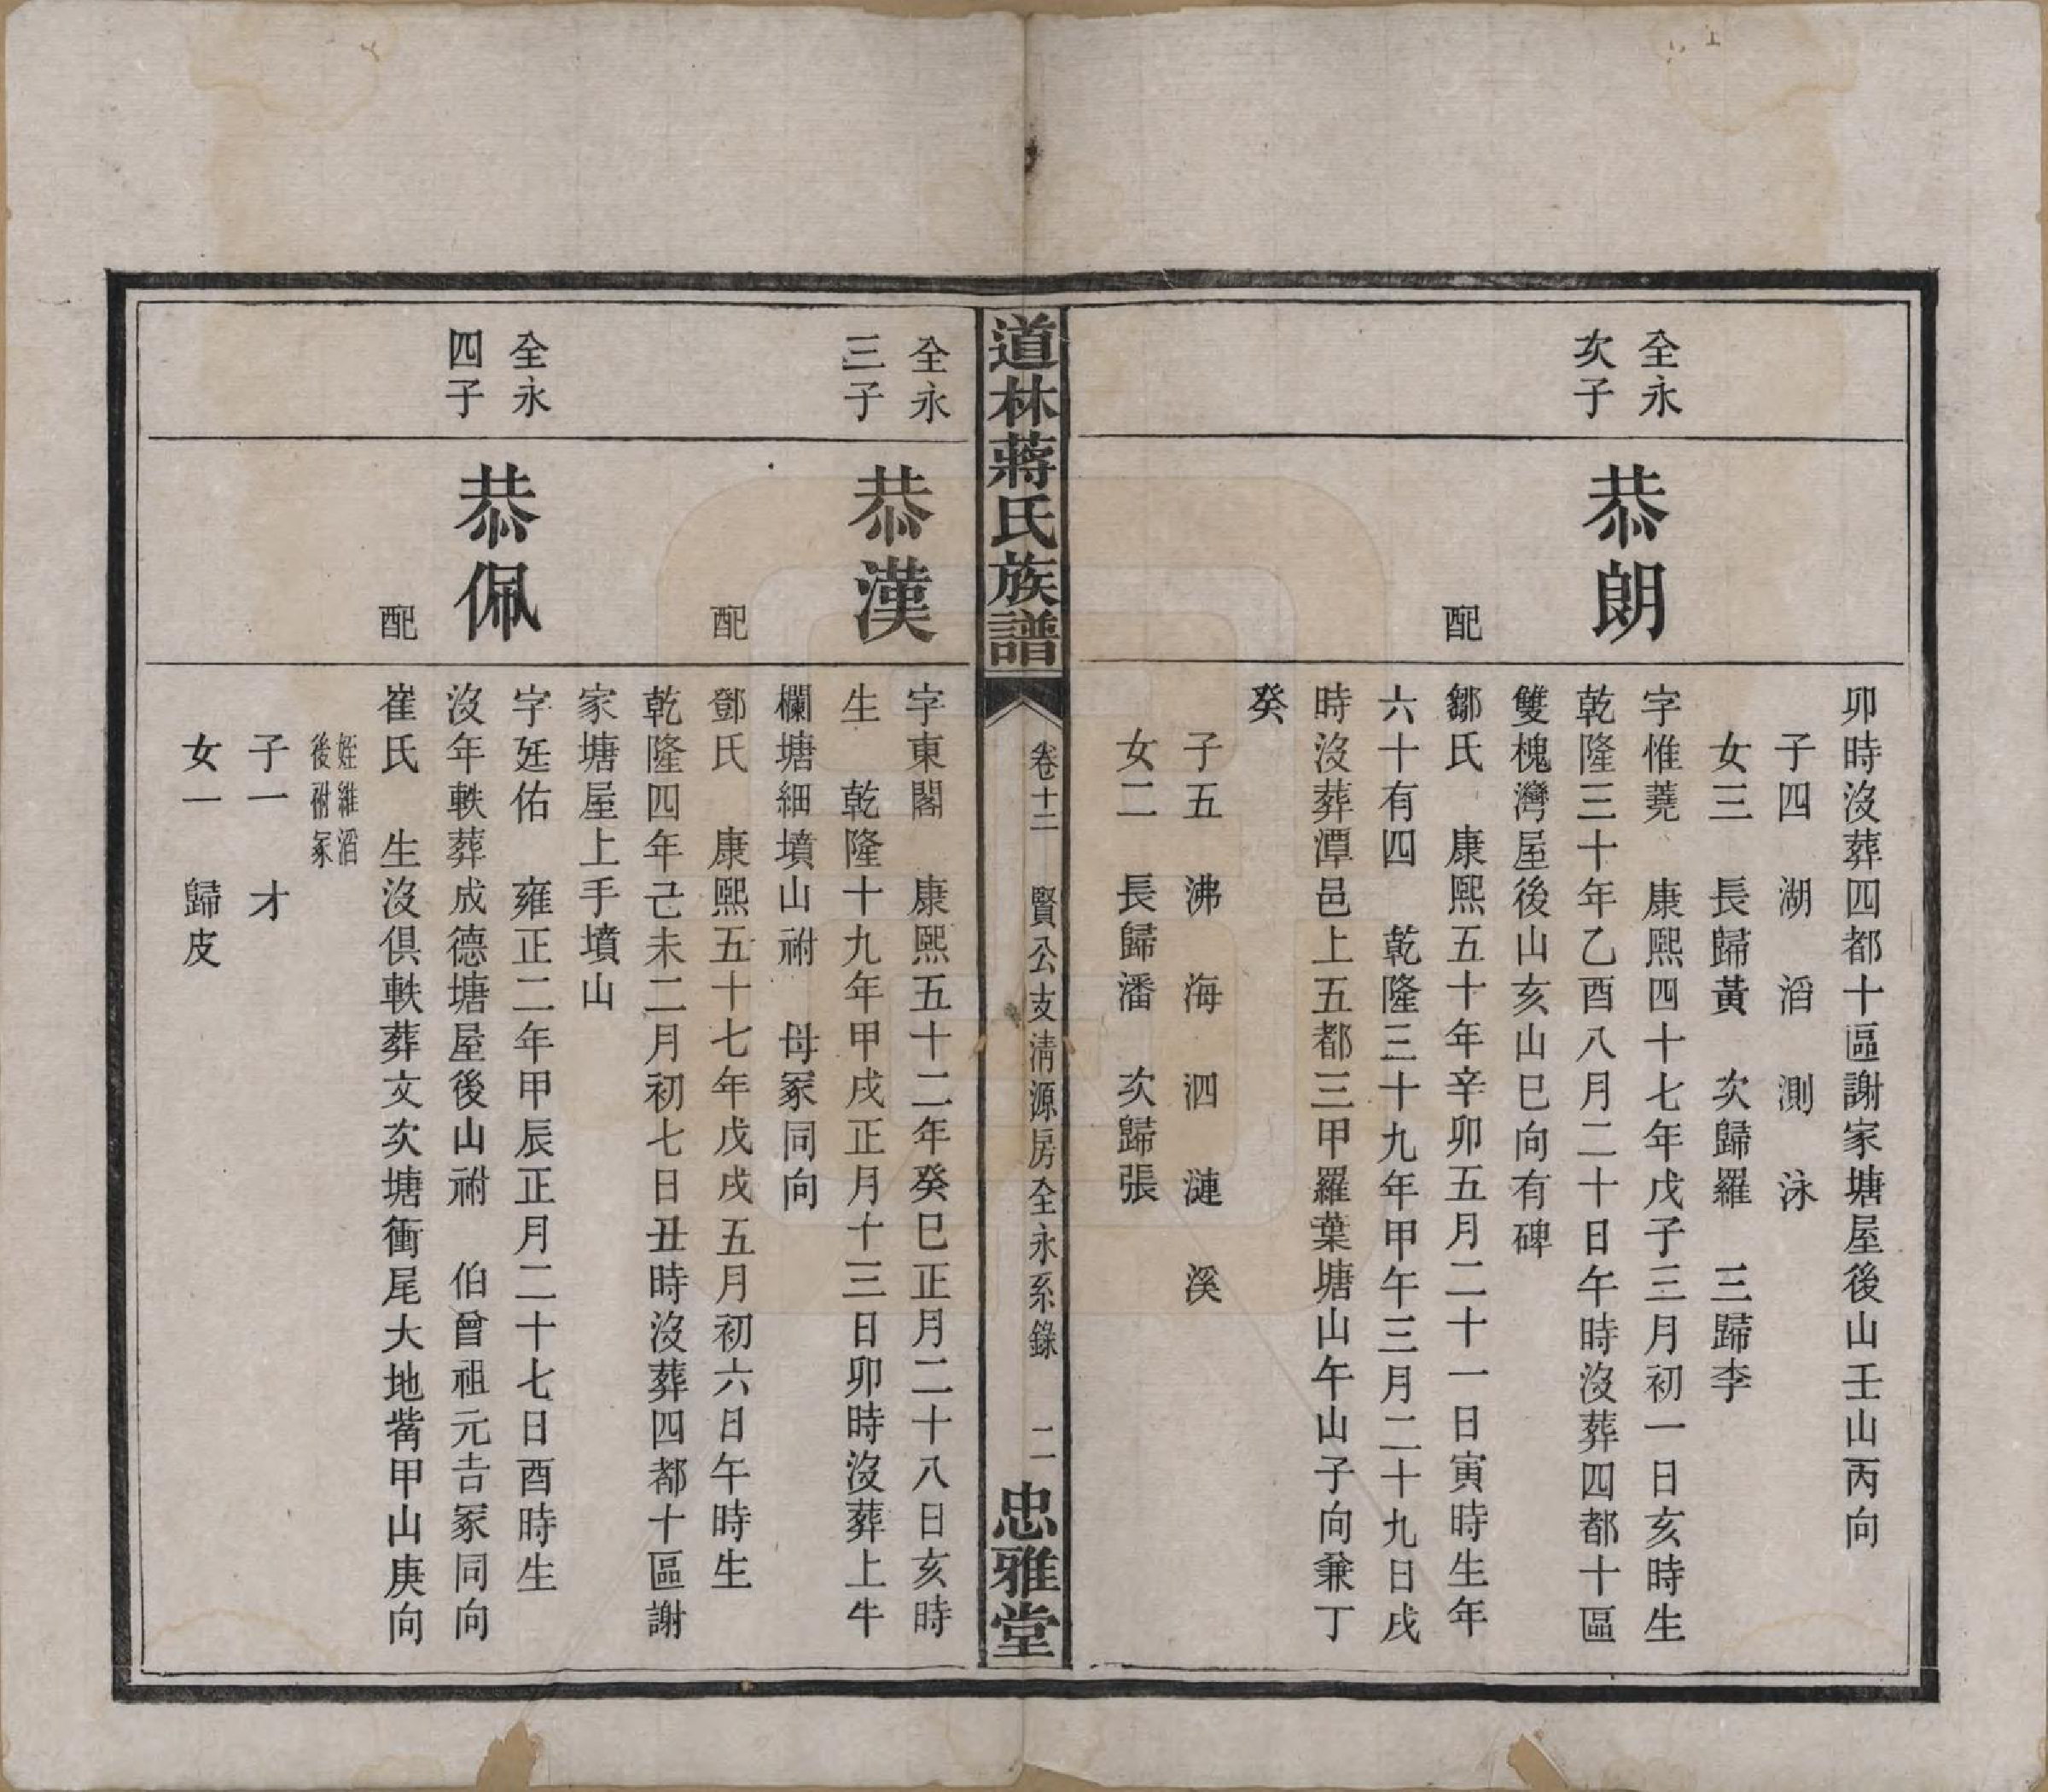 卯時沒葬四都十區謝家塘屋後山壬山丙向
子四　湖　滔　測　泳
女三　長歸黃　次歸羅　三歸李
全永
次子
恭朗
字惟蕘　康熙四十七年戊子三月初一日亥時生
乾隆三十年乙酉八月二十日午時沒葬四都十區
雙槐灣屋後山亥山巳向有碑
配
鄒氏　康熙五十年辛卯五月二十一日寅時生年
六十有四　乾隆三十九年甲午三月二十九日戌
時沒葬潭邑上五都三甲羅葉塘山午山子向兼丁
癸
子五　沸　海　泗　漣　溪
女二　長歸潘　次歸張
道林蔣氏族譜
卷十二　賢公支清源房全永系錄　二
忠雅堂
全永
三子
恭漢
字東閣　康熙五十二年癸巳正月二十八日亥時
生　乾隆十九年甲戌正月十三日卯時沒葬上牛
欄塘細墳山祔　母冢同向
配
鄧氏　康熙五十七年戊戌五月初六日午時生
乾隆四年己未二月初七日丑時沒葬四都十區謝
家塘屋上手墳山
全永
四子
恭佩
字廷佑　雍正二年甲辰正月二十七日酉時生
沒年軼葬成德塘屋後山祔　伯曾祖元吉冢同向
配
崔氏　生沒俱軼葬文次塘衝尾大地觜甲山庚向
姪維滔
後祔冢
子一　才
女一　歸皮